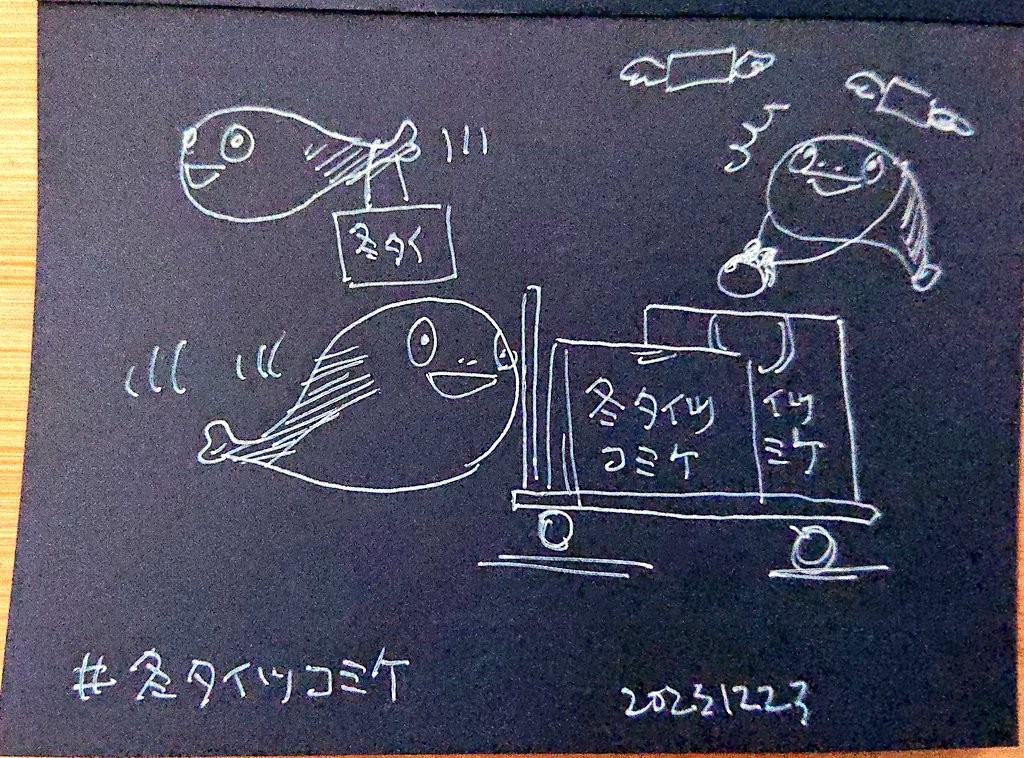 冬タイ
冬タイツ
コミケ
イツ
ミケ
#冬タイツコミケ
20231223